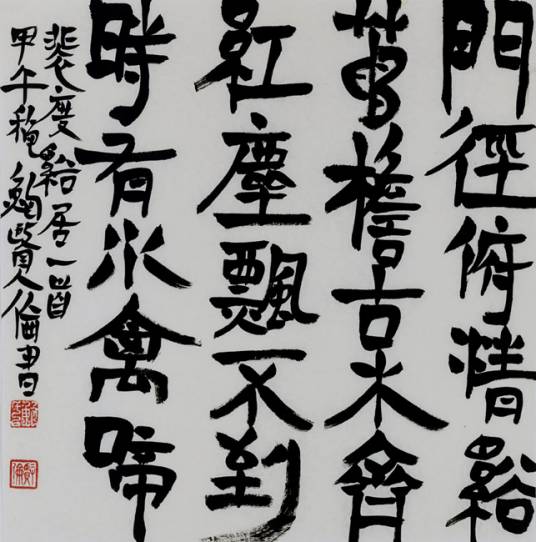 門徑俯清谿
茅檐古木齊
紅塵飄不到
時有水禽啼
裴度谿居一首
甲午穐鮑賢倫書